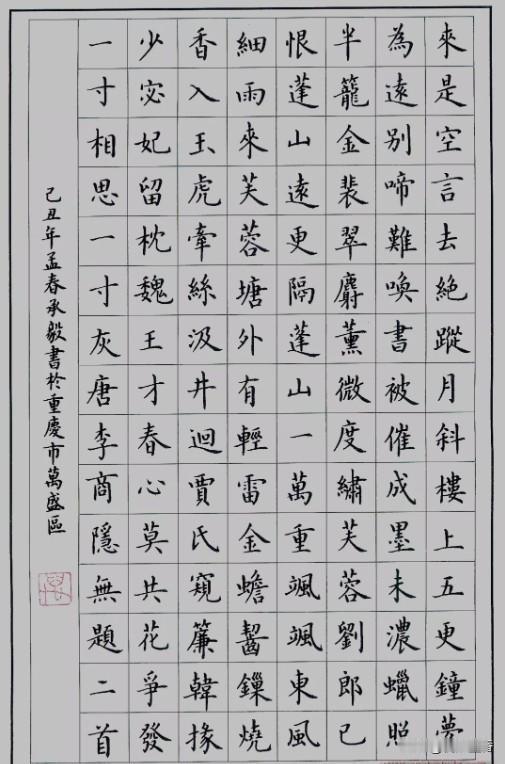 來是空言去絕蹤月斜樓上五更鐘夢
為遠別啼難喚書被催成墨未濃蠟照
半籠金裴翠麝薰微度繡芙蓉劉郎已
恨蓬山遠更隔蓬山一萬重颯颯東風
細雨來芙蓉塘外有輕雷金蟾齧鏁燒
香入玉虎牽絲汲井迴賈氏窺簾韓掾
少宓妃留枕魏王才春心莫共花爭發
一寸相思一寸灰唐李商隱無題二首
己丑年孟春承毅書於重慶市萬盛區